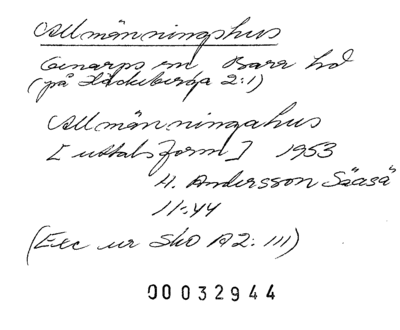 Allmänningshus
Genarps sn Bara hd
(på Häckeberga 2:1)
Allmänningahus
[uttalsform] 1953
H. Andersson Sãasã
11:44
(Exc ur Sko A2: III)
00032944